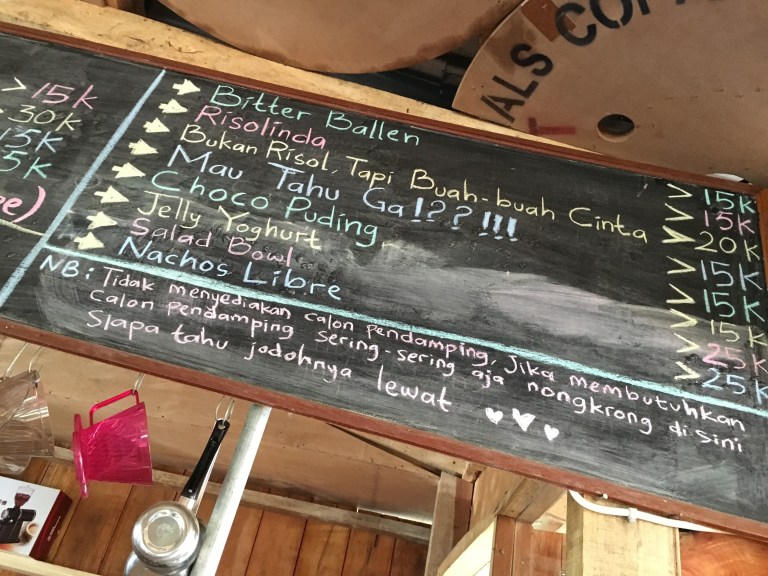 ALS COF
> 15K
30K
15K
5K
Bitter Ballen > 15K
Risolinda > 15K
Bukan Risol, Tapi Buah-buah Cinta > 20K
Mau Tahu Ga!??!!! > 15K
Choco Puding > 15K
Jelly Yoghurt > 15K
Salad Bowl > 25K
Nachos Libre > 25K
NB: Tidak menyediakan calon pendamping, Jika membutuhkan
calon pendamping sering-sering aja nongkrong disini
Siapa tahu jodohnya lewat